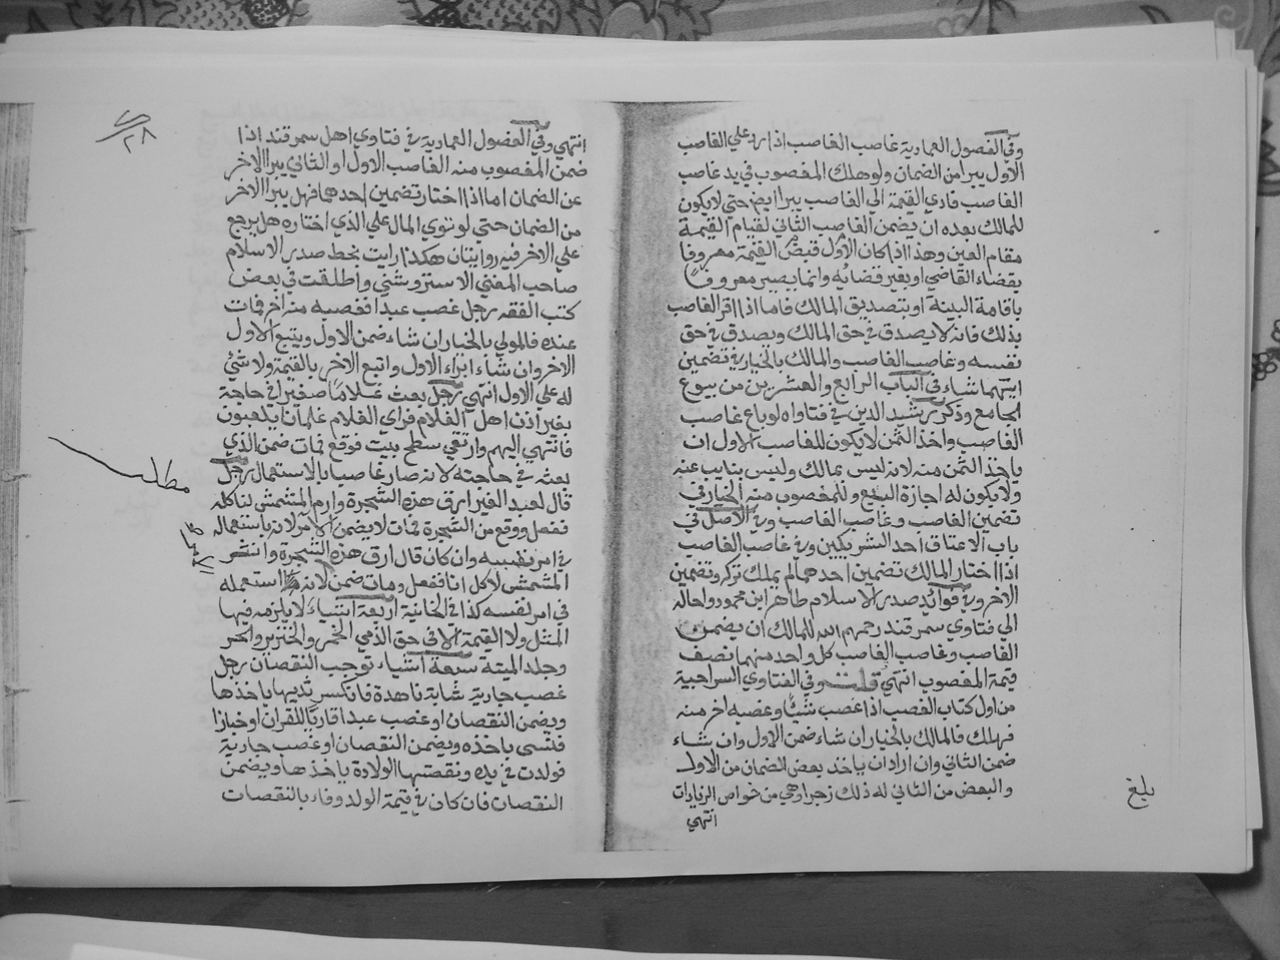 وفي الفصول العمادية غاصب الغاصب اذا رد علي الغاصب
الاول يبرا من الضمان ولو هلك المغصوب في يد غاصب
الغاصب فادي القيمة الي الغاصب يبرا ايضا حتي لا يكون
للمالك بعده ان يضمن الغاصب الثاني لقيام القيمة
مقام العين وهذا اذا كان الاول قبض القيمة معروفا
بقضاء القاضي او بغير قضائه وانما يصير معروفا
باقامة البينة او بتصديق المالك فاما اذا اقر الغاصب
بذلك فانه لا يصدق في حق المالك ويصدق في حق
نفسه وغاصب الغاصب والمالك بالخيار في تضمين
ايهما شاء في الباب الرابع والعشرين من بيوع
الجامع وذكر رشيد الدين في فتاواه لو باع غاصب
الغاصب واخذ الثمن لا يكون للغاصب الاول ان
ياخذ الثمن منه لانه ليس بمالك وليس بنايب عنه
ولا يكون له اجازة البيع وللمغصوب منه الخيار في
تضمين الغاصب وغاصب الغاصب وفي الاصل في
باب الاعتاق احد الشريكين وفي غاصب الغاصب
اذا اختار المالك تضمين احدهما لم يملك تركه وتضمين
الاخر وفي فوائد صدر الاسلام طاهر ابن محمود واحاله
الي فتاوي سمرقند رحمهم الله للمالك ان يضمن
الغاصب وغاصب الغاصب كل واحد منهما نصف
قيمة المغصوب انتهي قلت وفي الفتاوي السراجية
من اول كتاب الغصب اذا غصب شيئا وغصبه اخر منه
فهلك فالمالك بالخيار ان شاء ضمن الاول وان شاء
ضمن الثاني وان اراد ان ياخذ بعض الضمان من الاول
والبعض من الثاني له ذلك زجرا وهي من خواص الزيادات
انتهي
بلغ
٢٨
انتهي وفي الفصول العمادية في فتاوي اهل سمرقند اذا
ضمن المغصوب منه الغاصب الاول او الثاني يبرا الاخر
عن الضمان اما اذا اختار تضمين احدهما فهل يبرا الاخر
من الضمان حتي لو توي المال علي الذي اختاره هل يرجع
علي الاخر فيه روايتان هكذا رايت بخط صدر الاسلام
صاحب المغني الاستروشني واطلقت في بعض
كتب الفقه رجل غصب عبدا فغصبه منه اخر فمات
عنده فالمولي بالخيار ان شاء ضمن الاول ويتبع الاول
الاخر وان شاء ابراء الاول واتبع الاخر بالقيمة ولا شئ
له علي الاول انتهي رجل بعث غلاما صغيرا في حاجة
بغير اذن اهل الغلام فراي الغلام غلمان يلعبون
فانتهي اليهم وارتقي سطح بيت فوقع فمات ضمن الذي
بعثه في حاجته لانه صار غاصبا بالاستعمال رجل
قال لعبد الغير ارق هذه الشجرة وارم المشمش لناكله
ففعل ووقع من الشجرة فمات لا يضمن الامر لانه باستعماله
في امر نفسه وان كان قال ارق هذه الشجرة وانتشر
المشمش لاكل انا ففعل ومات ضمن لانه استعمله
في امر نفسه كذا في الخانية اربعة اشياء لا يلزمه فيها
المثل ولا القيمة الا في حق الذمي الخمر والخنزير والحر
وجلد الميتة سبعة اشياء توجب النقصان رجل
غصب جارية شابة ناهدة فانكسر ثديها ياخذها
ويضمن النقصان او غصب عبدا قاريا للقران او خبازا
فنسي ياخذه ويضمن النقصان او غصب جارية
فولدت في يده ونقصتها الولادة ياخذها ويضمن
النقصان فان كان في قيمة الولد وفاء بالنقصان
مطلب